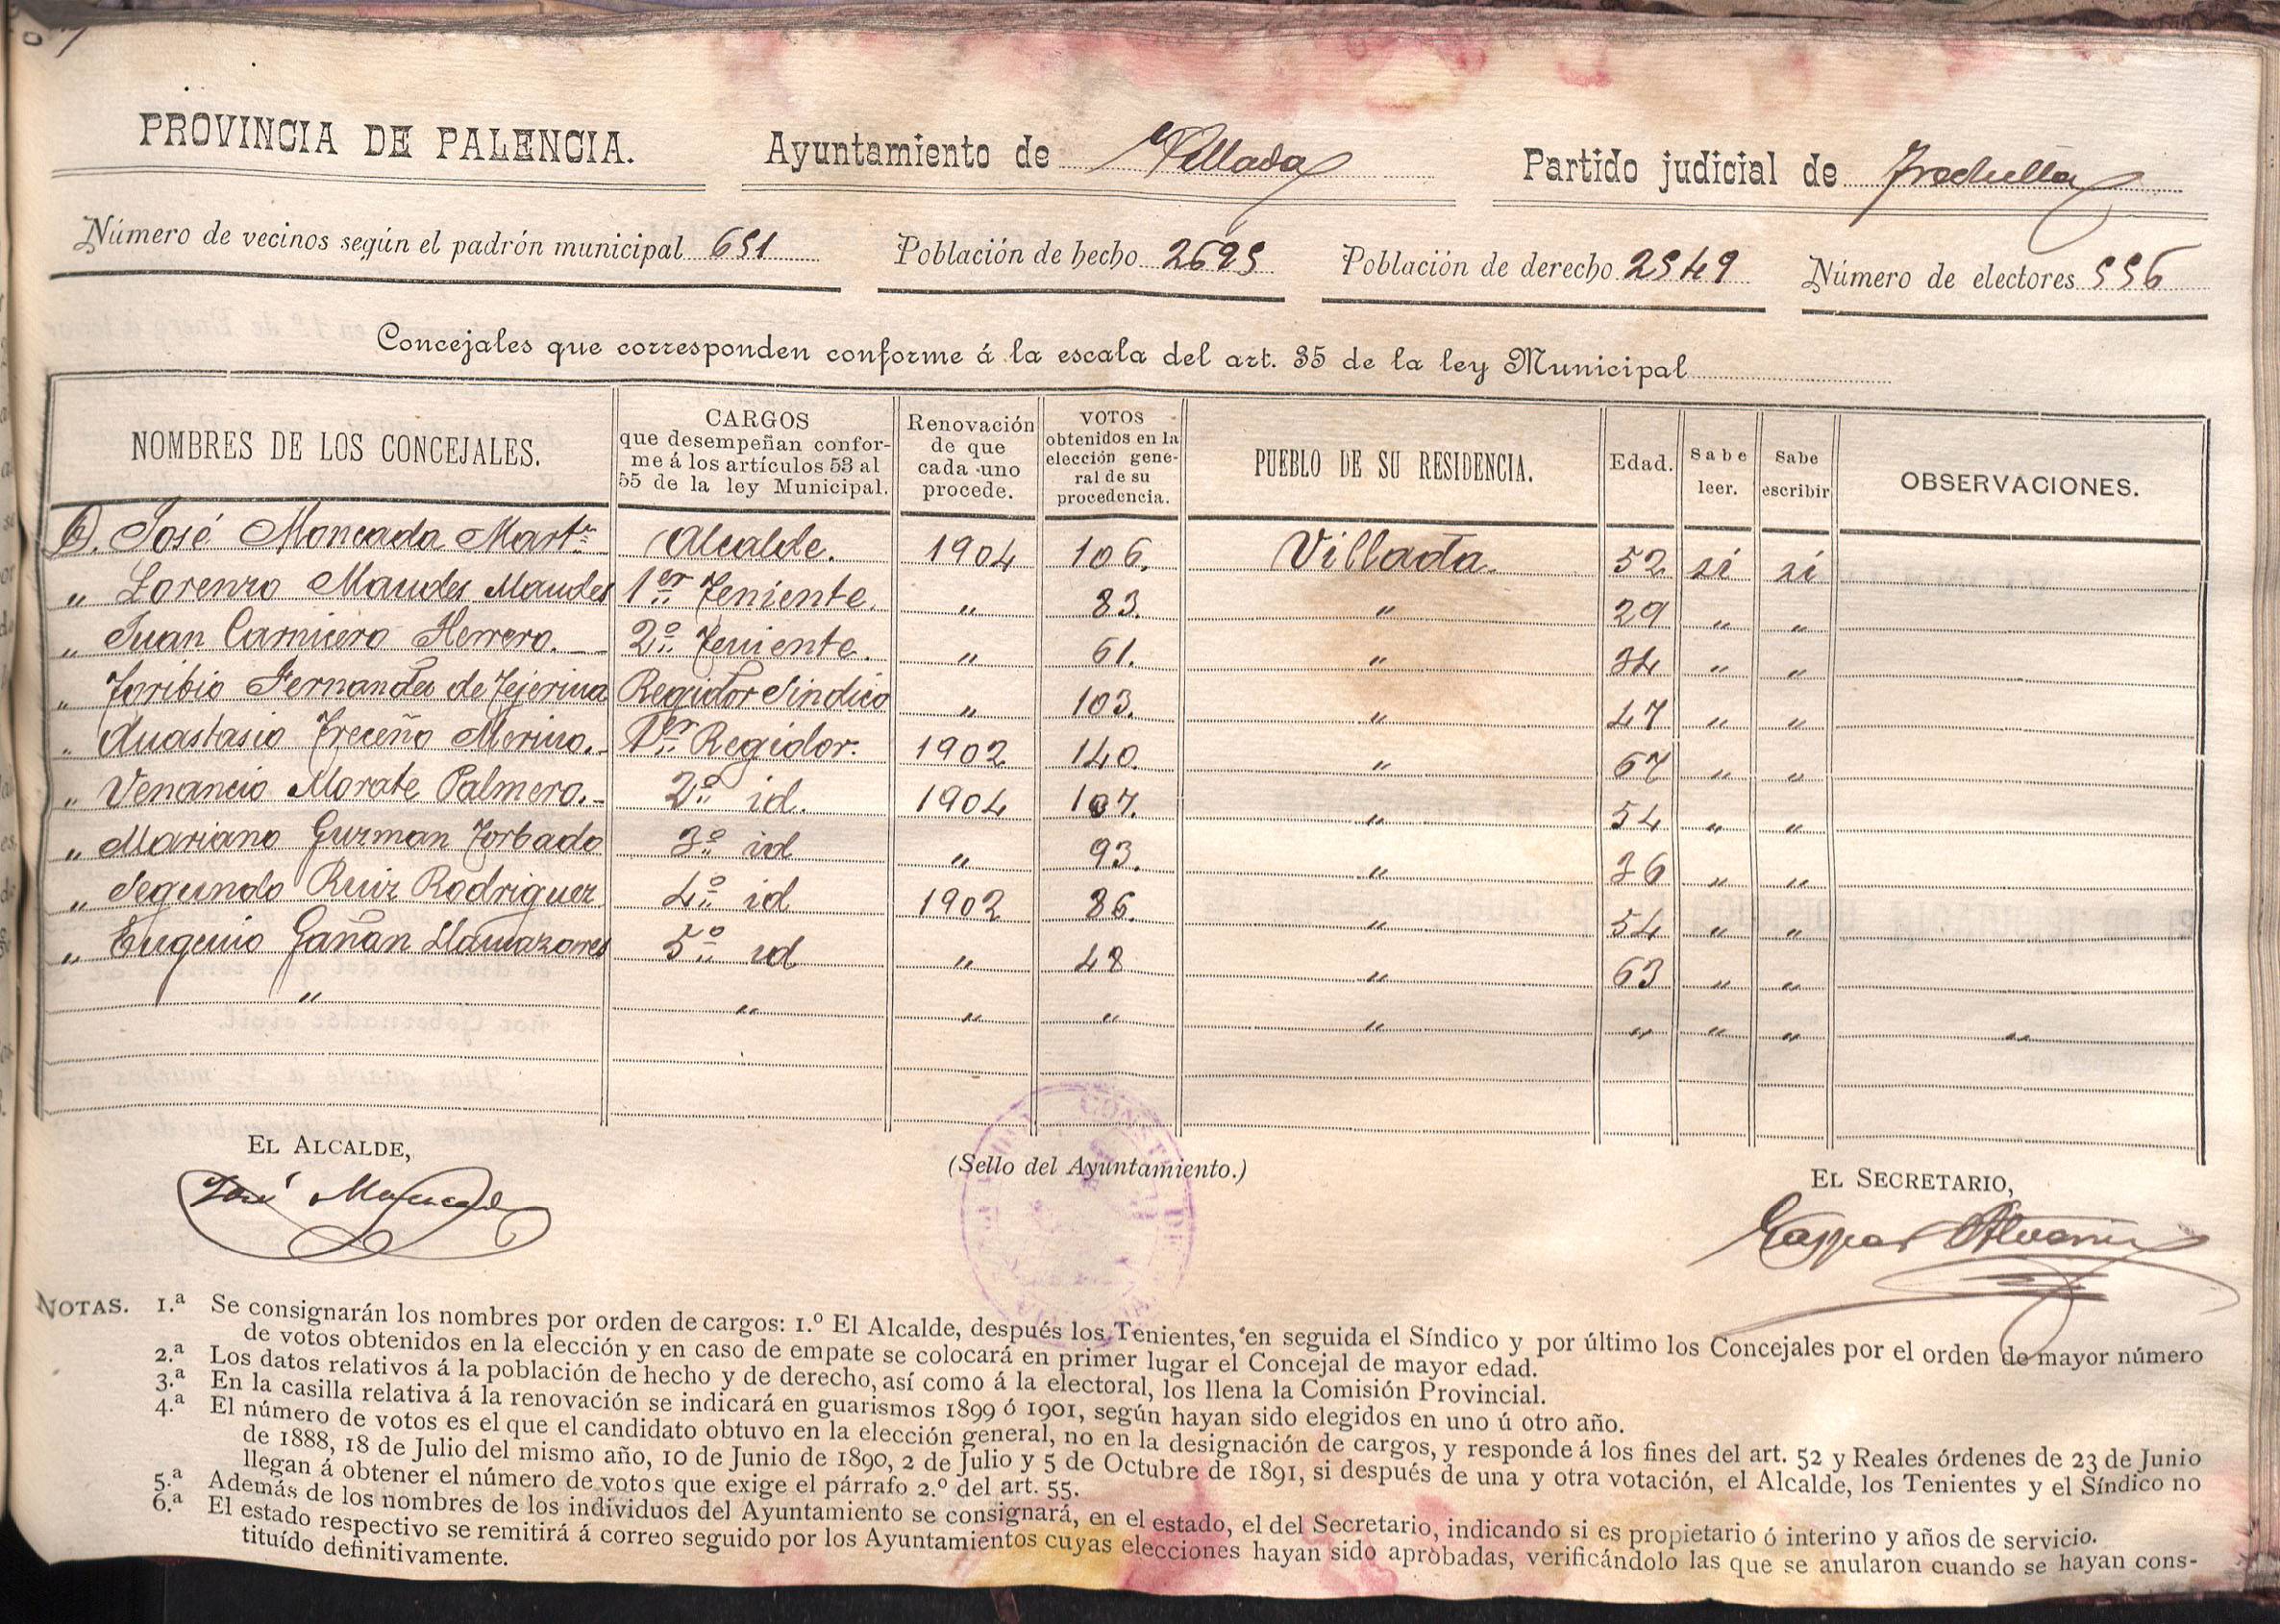 PROVINCIA DE PALENCIA. Ayuntamiento de Villada Partido judicial de Frechilla
Número de vecinos según el padrón municipal 651 Población de hecho 2695 Población de derecho 2549 Número de electores 556
Concejales que corresponden conforme á la escala del art. 35 de la ley Municipal
NOMBRES DE LOS CONCEJALES. CARGOS que desempeñan conforme á los artículos 53 al 55 de la ley Municipal. Renovación de que cada uno procede. VOTOS obtenidos en la elección general de su procedencia. PUEBLO DE SU RESIDENCIA. Edad. Sabe leer. Sabe escribir OBSERVACIONES.
D. José Moncada Martn. Alcalde. 1904 106. Villada 52 si si
" Lorenzo Maudes Maudes 1er Teniente. " 83. " 29 " "
" Juan Carnicero Herrero. 2º Teniente. " 61. " 34 " "
" Toribio Fernandez de Tejerina Regidor Sindico " 103. " 47 " "
" Anastasio Treceño Merino. 1er Regidor. 1902 140. " 67 " "
" Venancio Morate Palmero. 2º id. 1904 107. " 54 " "
" Mariano Guzman Torbado 3º id " 93. " 36 " "
" Segundo Ruiz Rodriguez 4º id 1902 86. " 54 " "
" Eugenio Gañán Llamazares 5º id " 48 " 63 " "
" " " " " " " " "
EL ALCALDE,
(Sello del Ayuntamiento.)
EL SECRETARIO,
José Moncada
Gaspar Alvarez
NOTAS. 1.ª Se consignarán los nombres por orden de cargos: 1.º El Alcalde, después los Tenientes, en seguida el Síndico y por último los Concejales por el orden de mayor número
de votos obtenidos en la elección y en caso de empate se colocará en primer lugar el Concejal de mayor edad.
2.ª Los datos relativos á la población de hecho y de derecho, así como á la electoral, los llena la Comisión Provincial.
3.ª En la casilla relativa á la renovación se indicará en guarismos 1899 ó 1901, según hayan sido elegidos en uno ú otro año.
4.ª El número de votos es el que el candidato obtuvo en la elección general, no en la designación de cargos, y responde á los fines del art. 52 y Reales órdenes de 23 de Junio
de 1888, 18 de Julio del mismo año, 10 de Junio de 1890, 2 de Julio y 5 de Octubre de 1891, si después de una y otra votación, el Alcalde, los Tenientes y el Síndico no
llegan á obtener el número de votos que exige el párrafo 2.º del art. 55.
5.ª Además de los nombres de los individuos del Ayuntamiento se consignará, en el estado, el del Secretario, indicando si es propietario ó interino y años de servicio.
6.ª El estado respectivo se remitirá á correo seguido por los Ayuntamientos cuyas elecciones hayan sido aprobadas, verificándolo las que se anularon cuando se hayan cons-
tituído definitivamente.